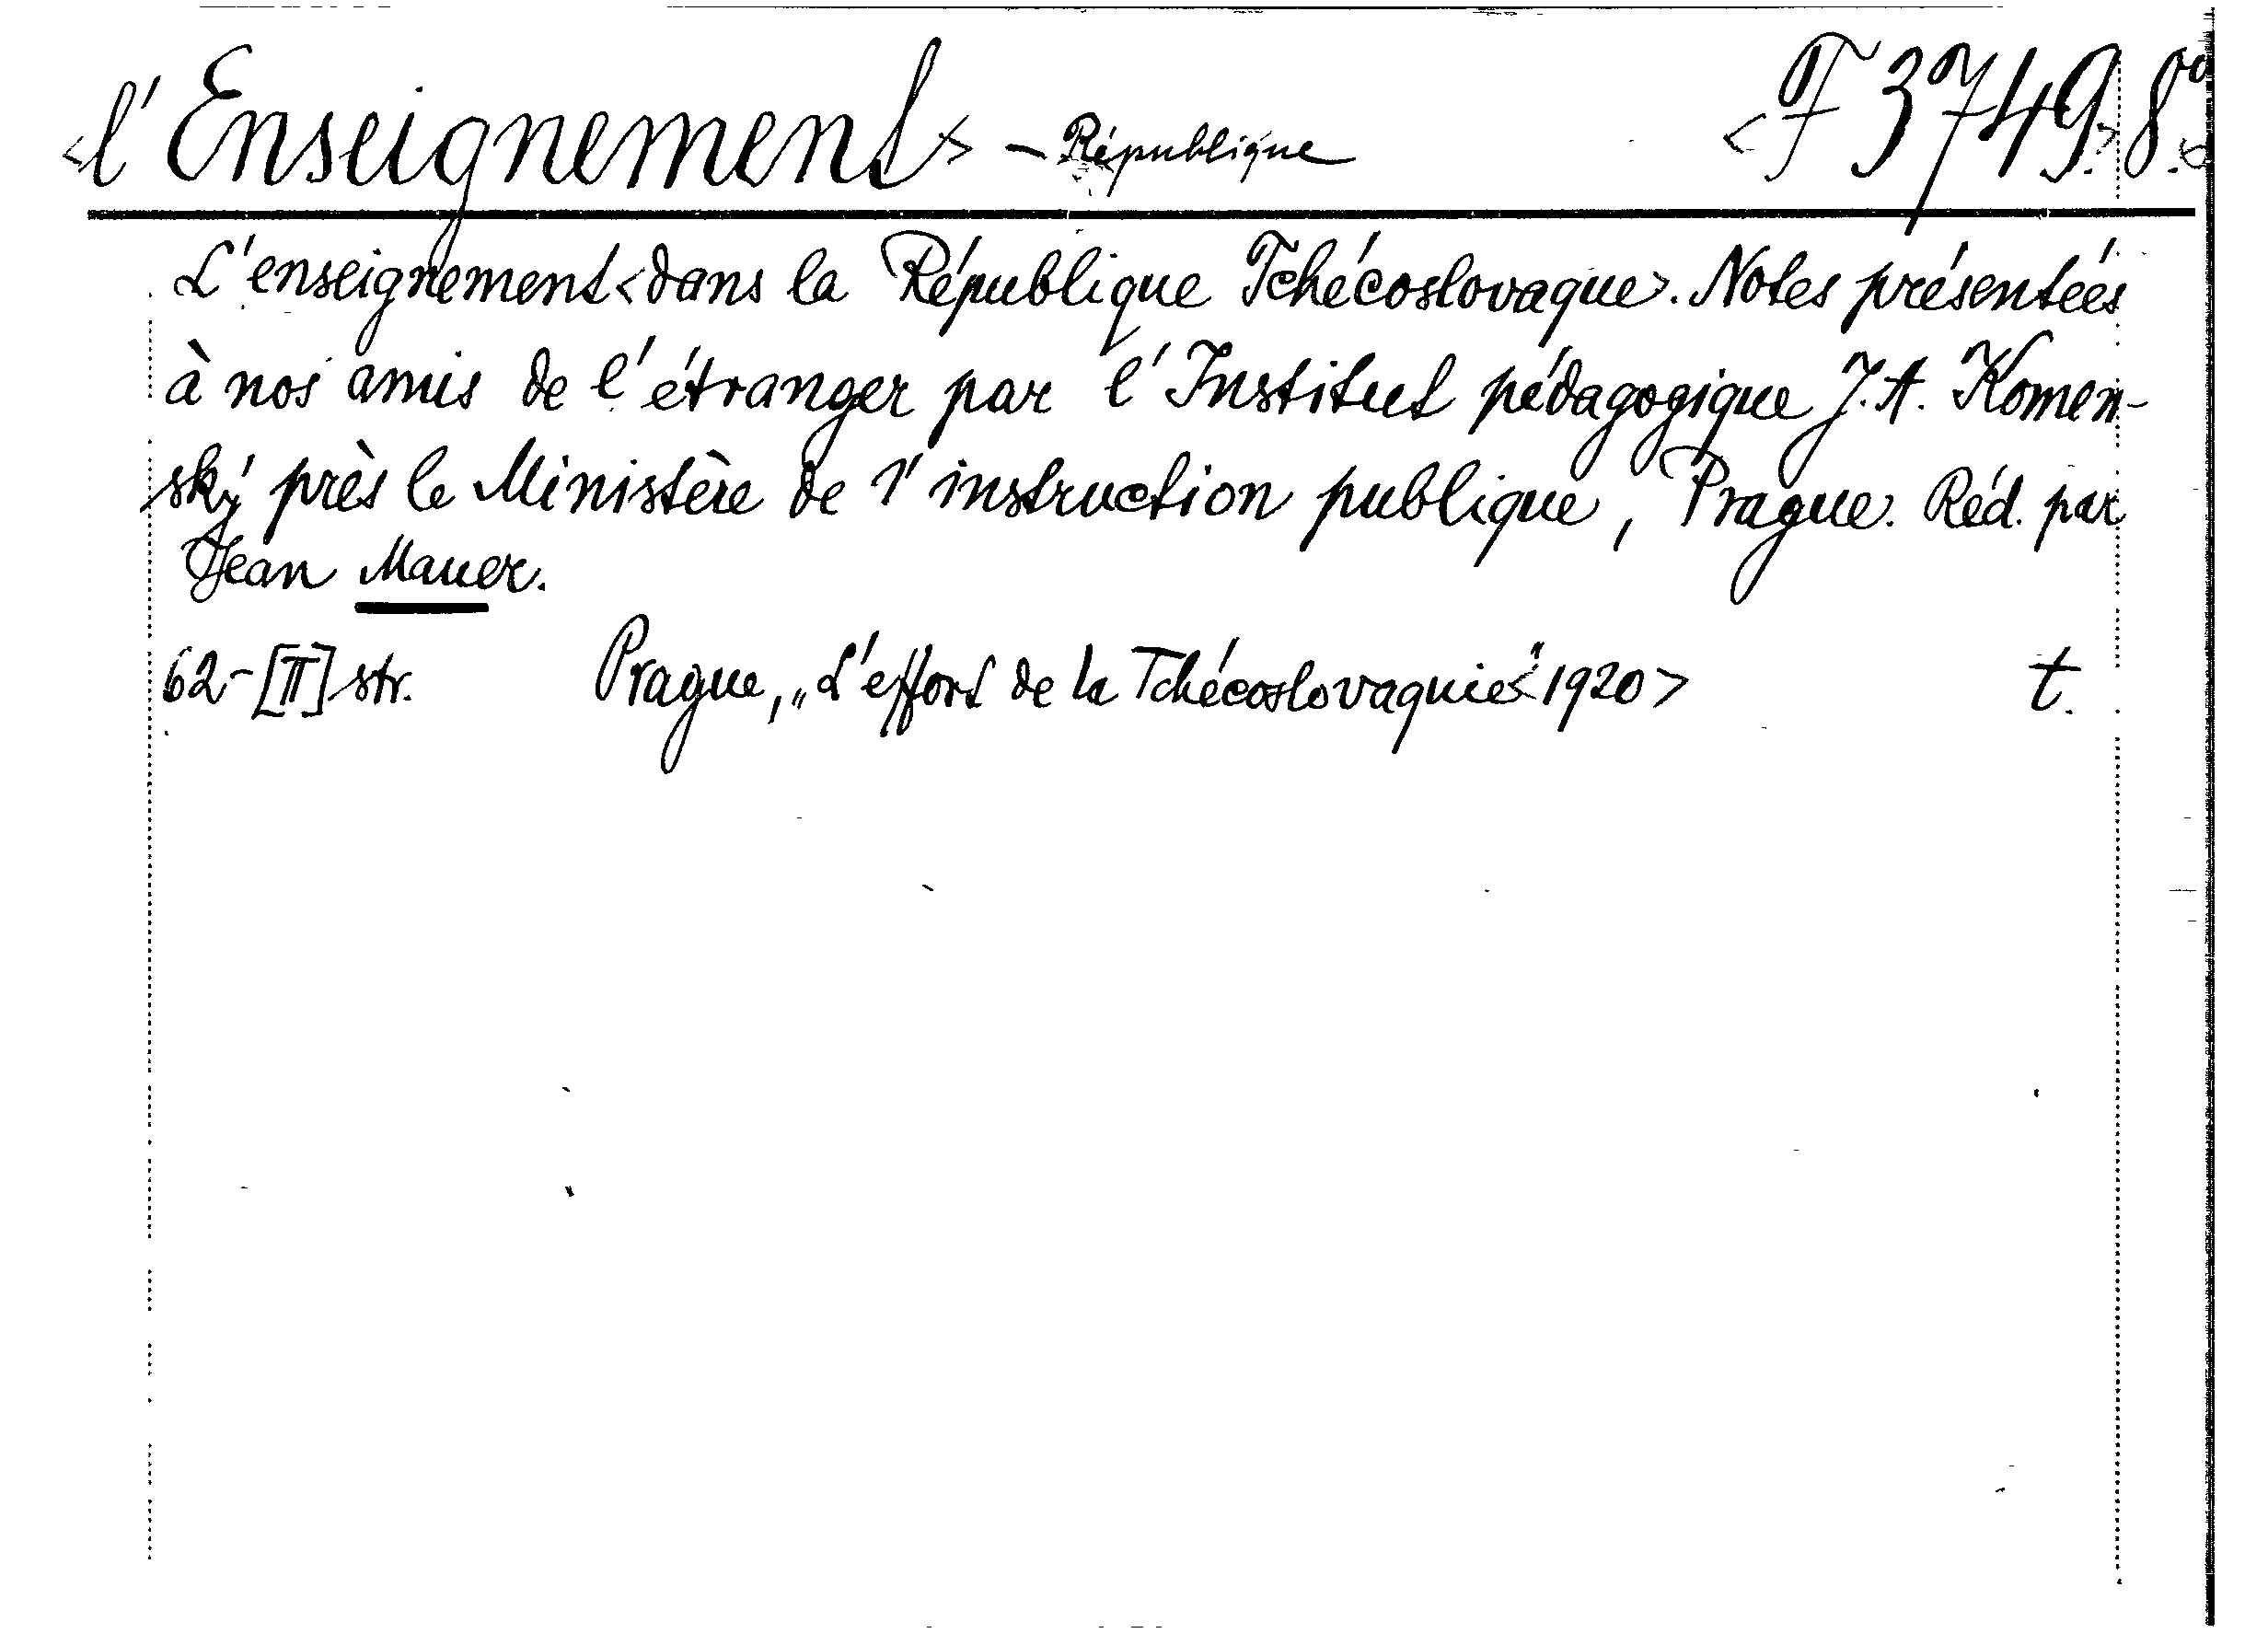 <l'Enseignement> - République <F 3749.> 8°.
L'enseignement <dans la République Tchécoslovaque>. Notes présentées
à nos amis de l'étranger par l'Institut pédagogique J. A. Komen-
ský près le Ministère de l'instruction publique, Prague. Réd. par
Jean Mauer.
62-[II] str. Prague, „L'effort de la Tchécoslovaquie" <1920> t.